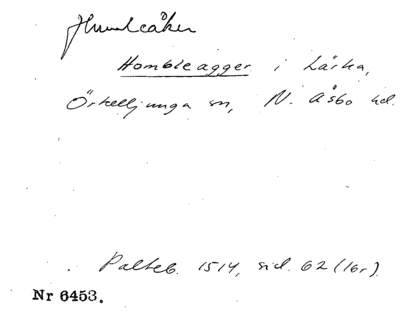 Humleåker
Hombleagger i Lärka,
Örkelljunga sn, N. Åsbo hd.
Palteb. 1514, sid. 62 (16r).
Nr 6453.